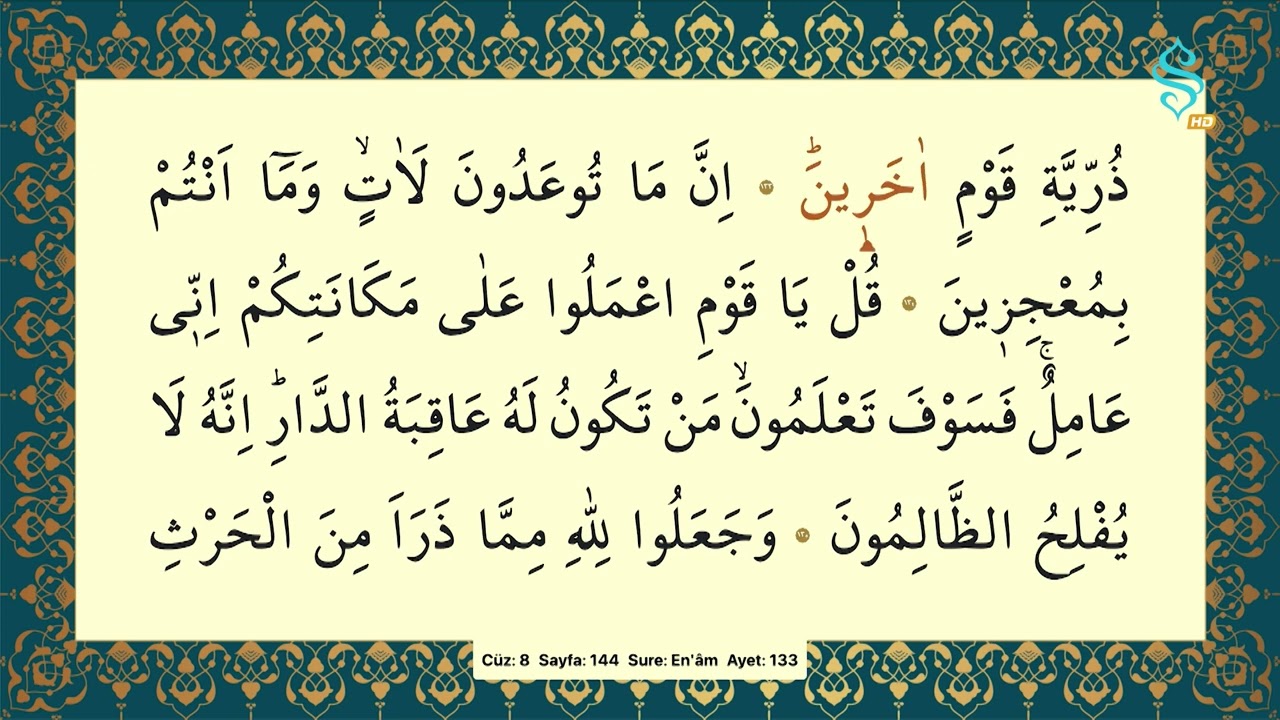 ذُرِّيَّةِ قَوْمٍ اٰخَرٖينَؕ ﴿١٣٣﴾ اِنَّ مَا تُوعَدُونَ لَاٰتٍۙ وَمَٓا اَنْتُمْ
بِمُعْجِزٖينَ ﴿١٣٤﴾ قُلْ يَا قَوْمِ اعْمَلُوا عَلٰى مَكَانَتِكُمْ اِنّٖى
عَامِلٌۚ فَسَوْفَ تَعْلَمُونَۙ مَنْ تَكُونُ لَهُ عَاقِبَةُ الدَّارِؕ اِنَّهُ لَا
يُفْلِحُ الظَّالِمُونَ ﴿١٣٥﴾ وَجَعَلُوا لِلّٰهِ مِمَّا ذَرَاَ مِنَ الْحَرْثِ
Cüz: 8 Sayfa: 144 Sure: En'âm Ayet: 133
HD